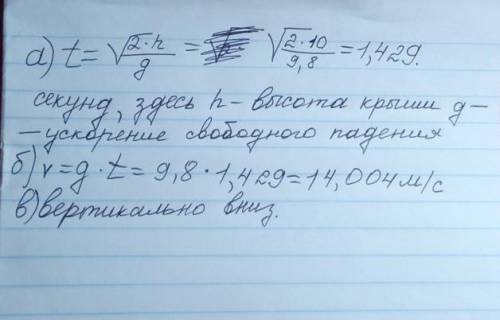 а) t = √2·h/g = √2·10/9,8 = 1,429.
секунд, здесь h - высота крыши g -
- ускорение свободного падения
б) v = g · t = 9,8 · 1,429 = 14,004 м/с
в) вертикально вниз.